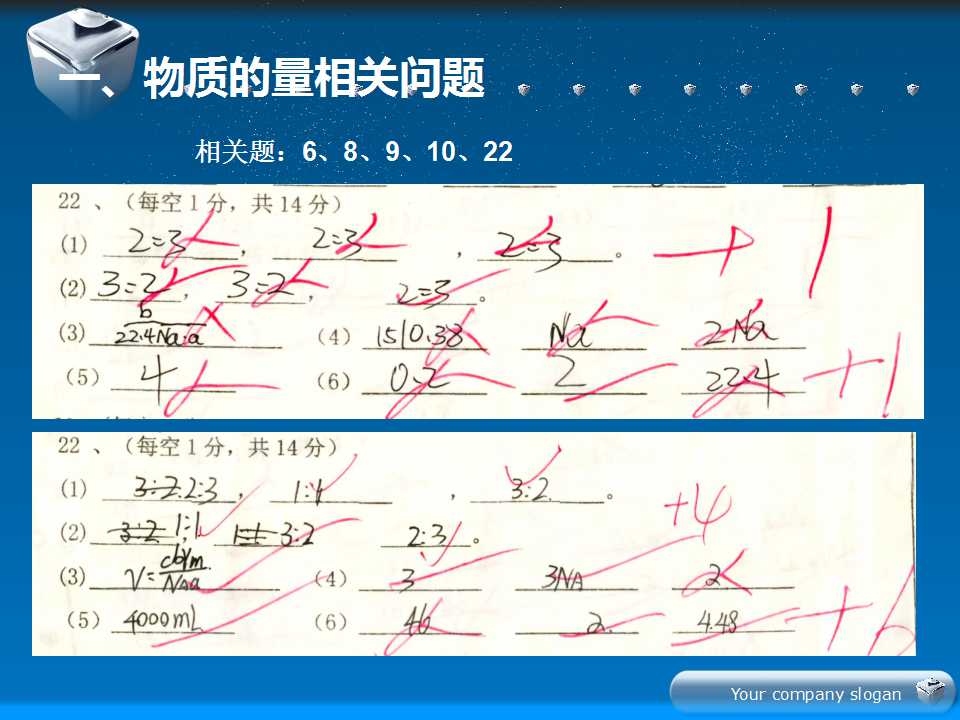 一、物质的量相关问题
相关题：6、8、9、10、22
22 、（每空1分，共14分）
(1) 2=3 ， 2=3 ， 2=3 。 +1
(2) 3=2 ， 3=2 ， 2=3 。
(3) b
22.4Na·a （4） 1510.38 Na 2Na
（5） 4 （6） 0.2 2 22.4 +1
22 、（每空1分，共14分）
(1) 3:2 2:3 ， 1:1 ， 3:2 。 +4
(2) 3:2 1:1 ， 1:1 3:2 2:3 。
(3) V= （4） 3 3NA 2
（5） 4000mL （6） 46 2 4.48 +6
Your company slogan